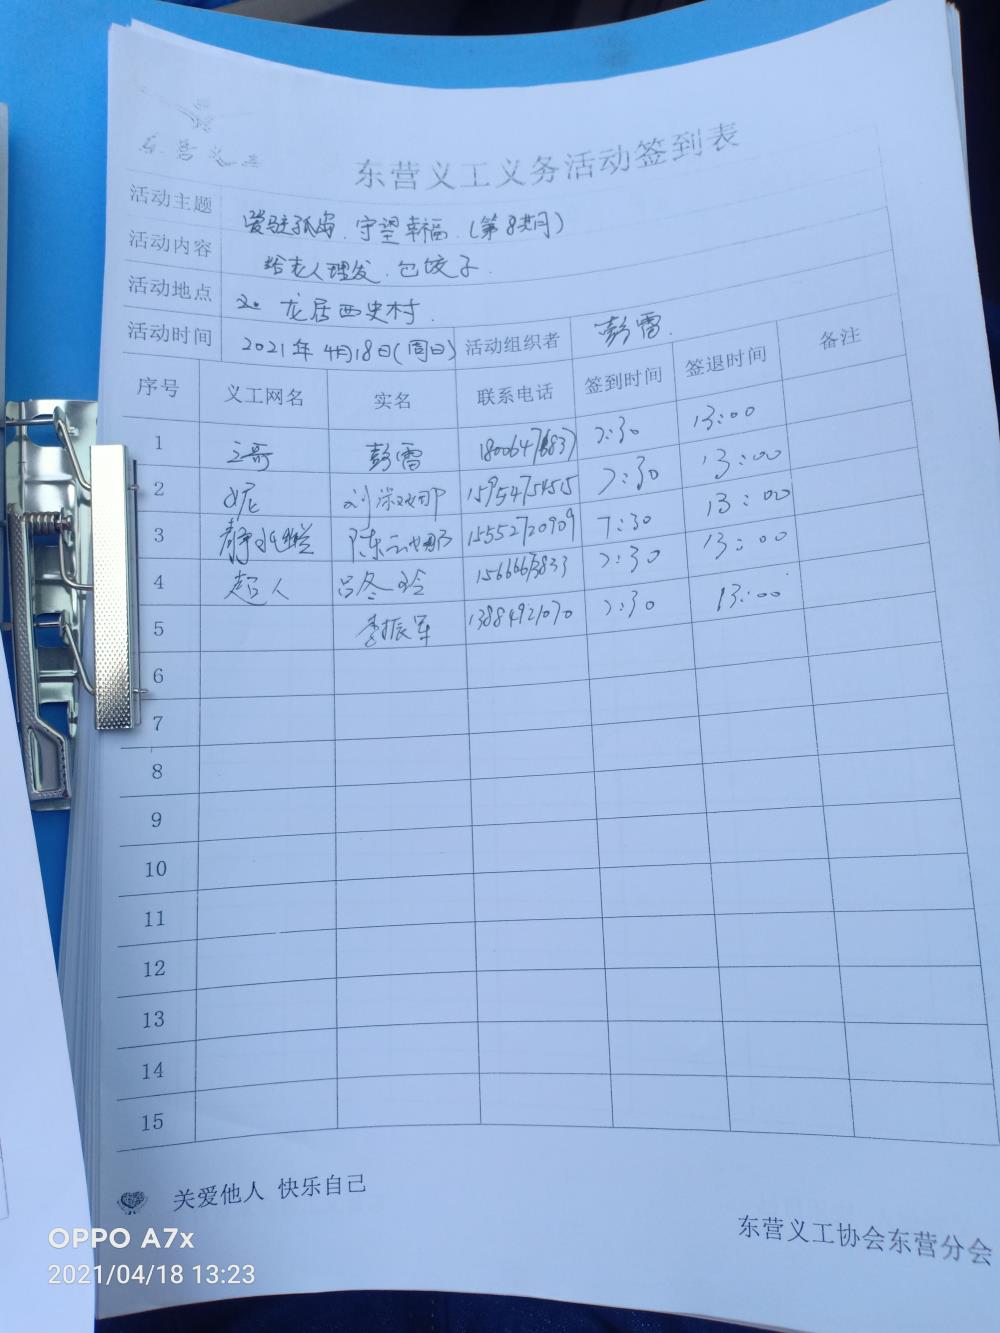 东营义工
东营义工义务活动签到表
活动主题 爱驻孤岛.守望幸福.(第8期)
活动内容 给老人理发.包饺子.
活动地点 龙居西史村.
活动时间 2021年4月18日(周日) 活动组织者 彭雷.
序号 义工网名 实名 联系电话 签到时间 签退时间 备注
1 彭雷 7:30 13:00
2 妮 15954754515 7:30 13:00
3 静 陈 15552720909 7:30 13:00
4 超人 吕冬玲 15666673833 7:30 13:00
5 李振军 13884921070 7:30 13:00
6
7
8
9
10
11
12
13
14
15
关爱他人 快乐自己
东营义工协会东营分会
OPPO A7x
2021/04/18 13:23